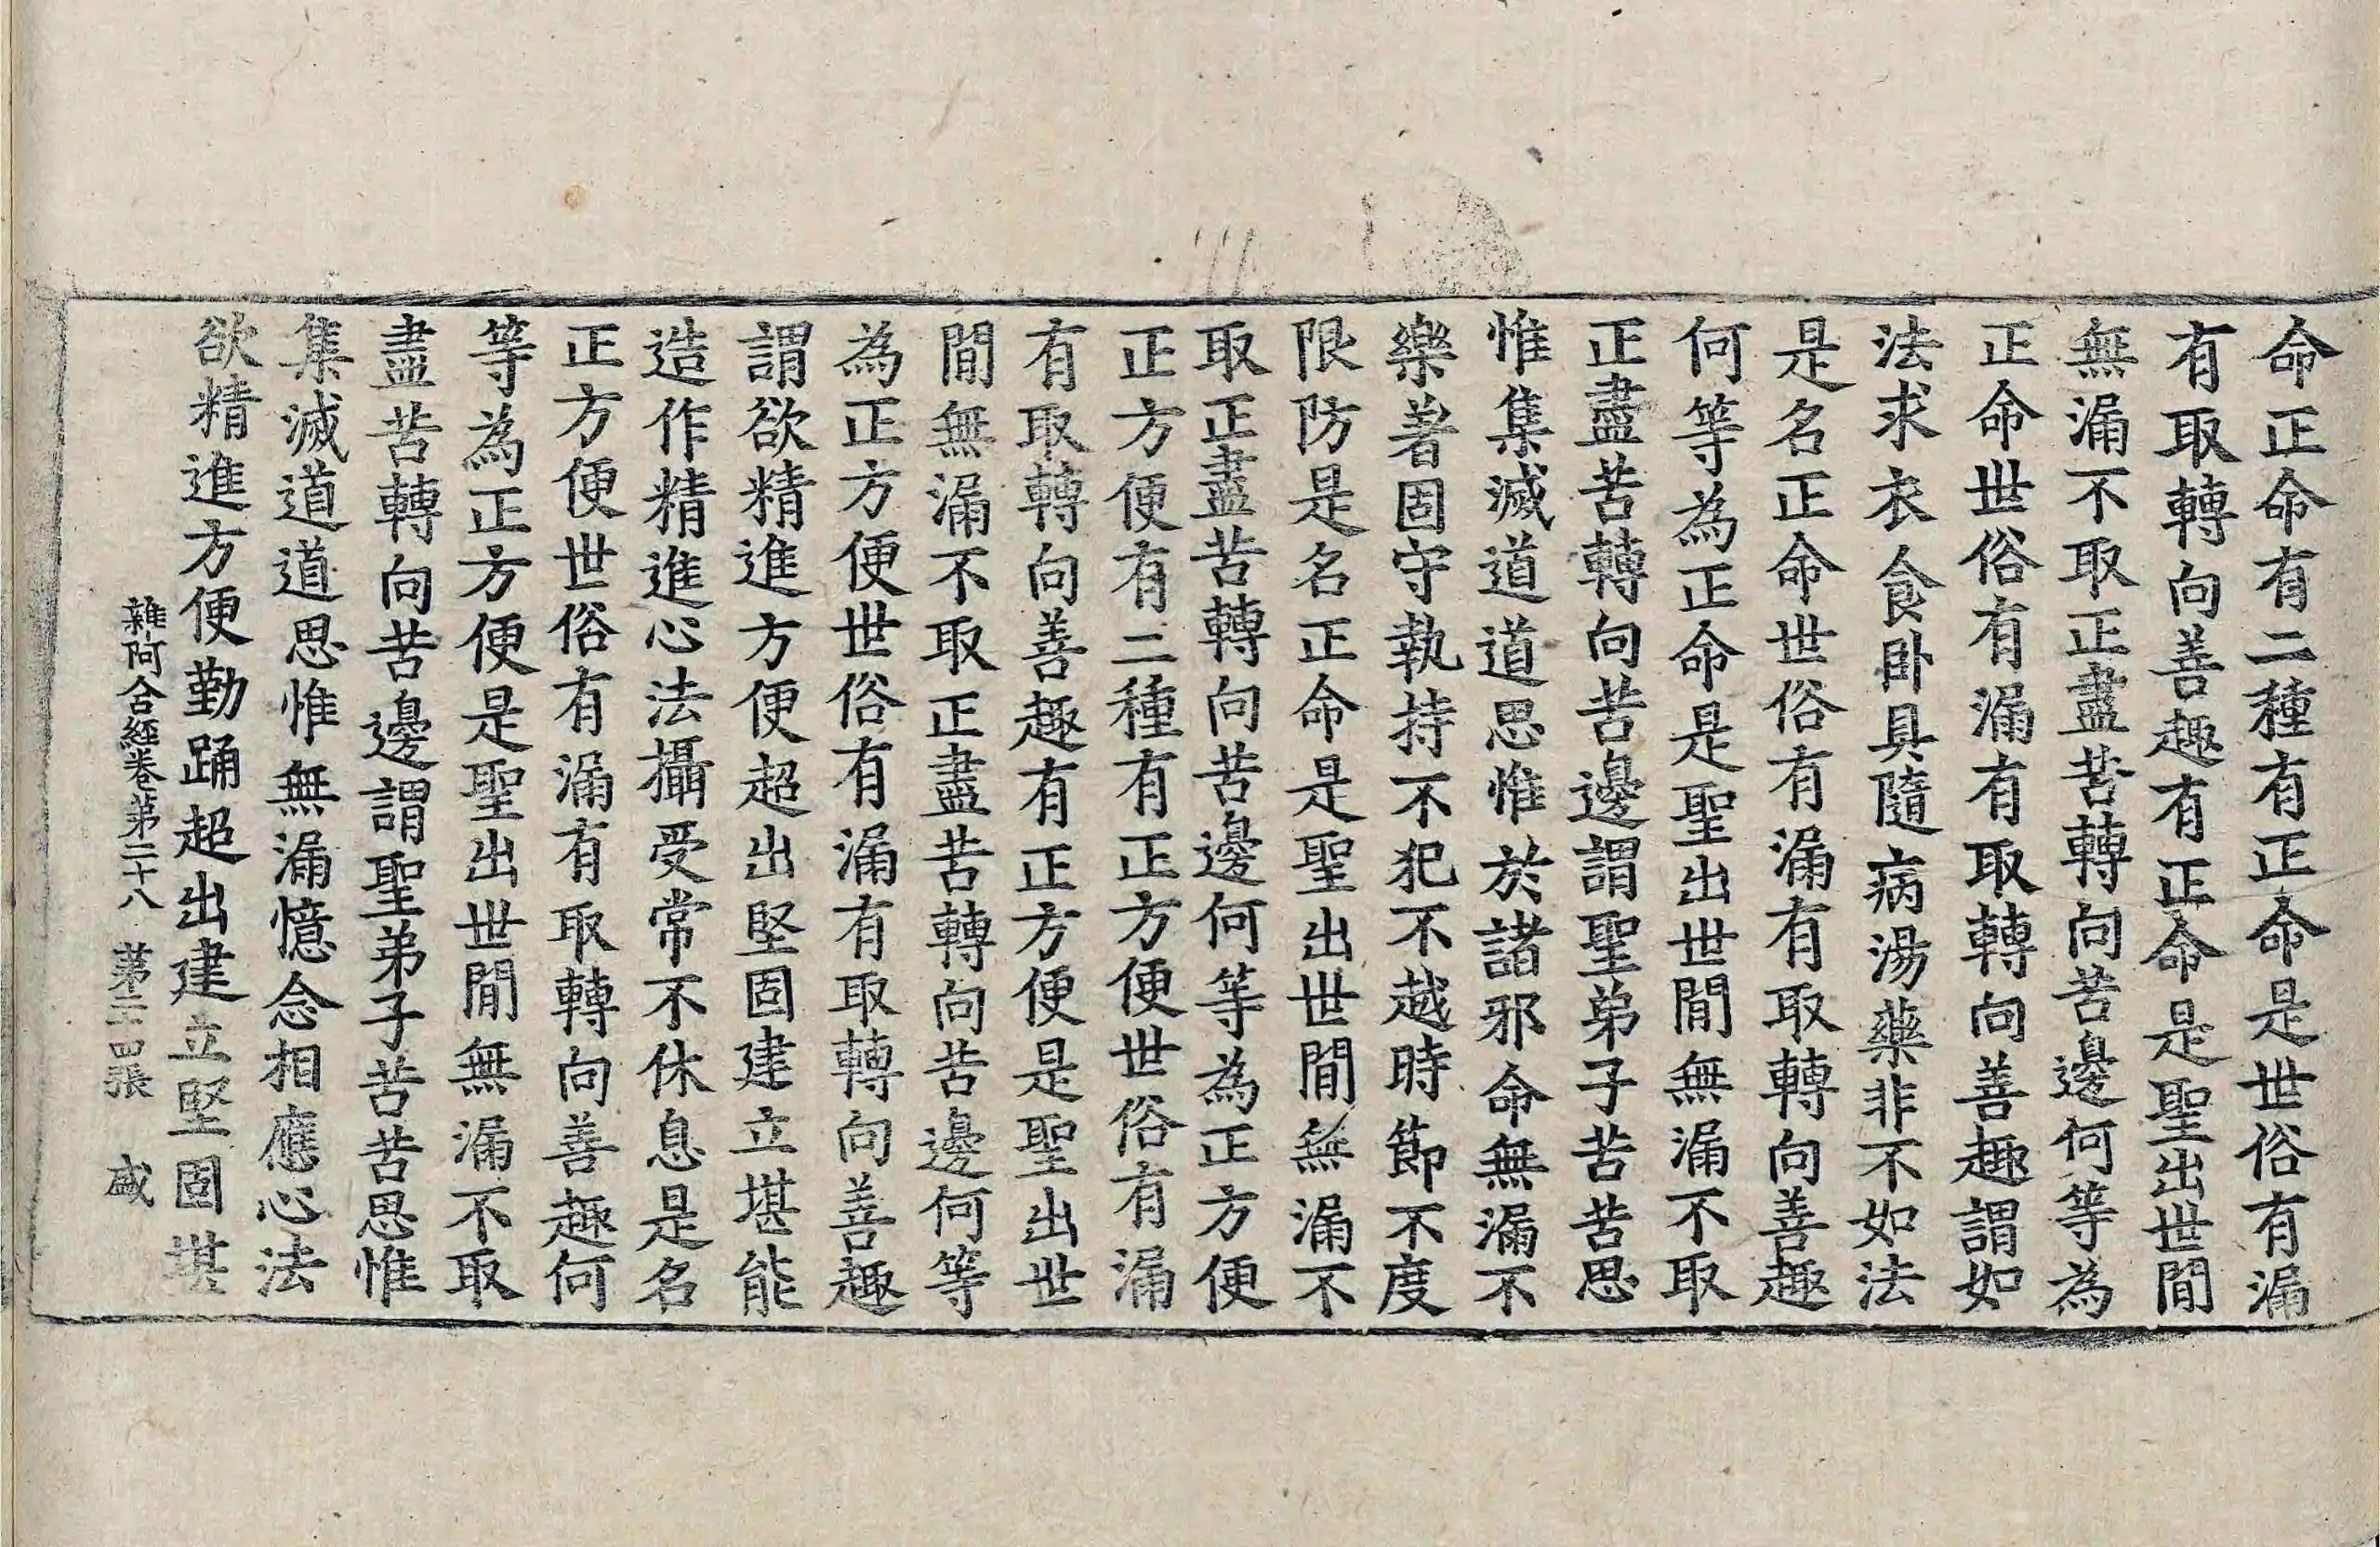 命正命有二種有正命是世俗有漏
有取轉向善趣有正命是聖出世間
無漏不取正盡苦轉向苦邊何等為
正命世俗有漏有取轉向善趣謂如
法求衣食卧具隨病湯藥非不如法
是名正命世俗有漏有取轉向善趣
何等為正命是聖出世間無漏不取
正盡苦轉向苦邊謂聖弟子苦苦思
惟集滅道道思惟於諸邪命無漏不
樂著固守執持不犯不越時節不度
限防是名正命是聖出世間無漏不
取正盡苦轉向苦邊何等為正方便
正方便有二種有正方便世俗有漏
有取轉向善趣有正方便是聖出世
間無漏不取正盡苦轉向苦邊何等
為正方便世俗有漏有取轉向善趣
謂欲精進方便超出堅固建立堪能
造作精進心法攝受常不休息是名
正方便世俗有漏有取轉向善趣何
等為正方便是聖出世間無漏不取
盡苦轉向苦邊謂聖弟子苦苦思惟
集滅道道思惟無漏憶念相應心法
欲精進方便勤踊超出建立堅固堪
雜阿含經卷第二十八 第二十四張 盛